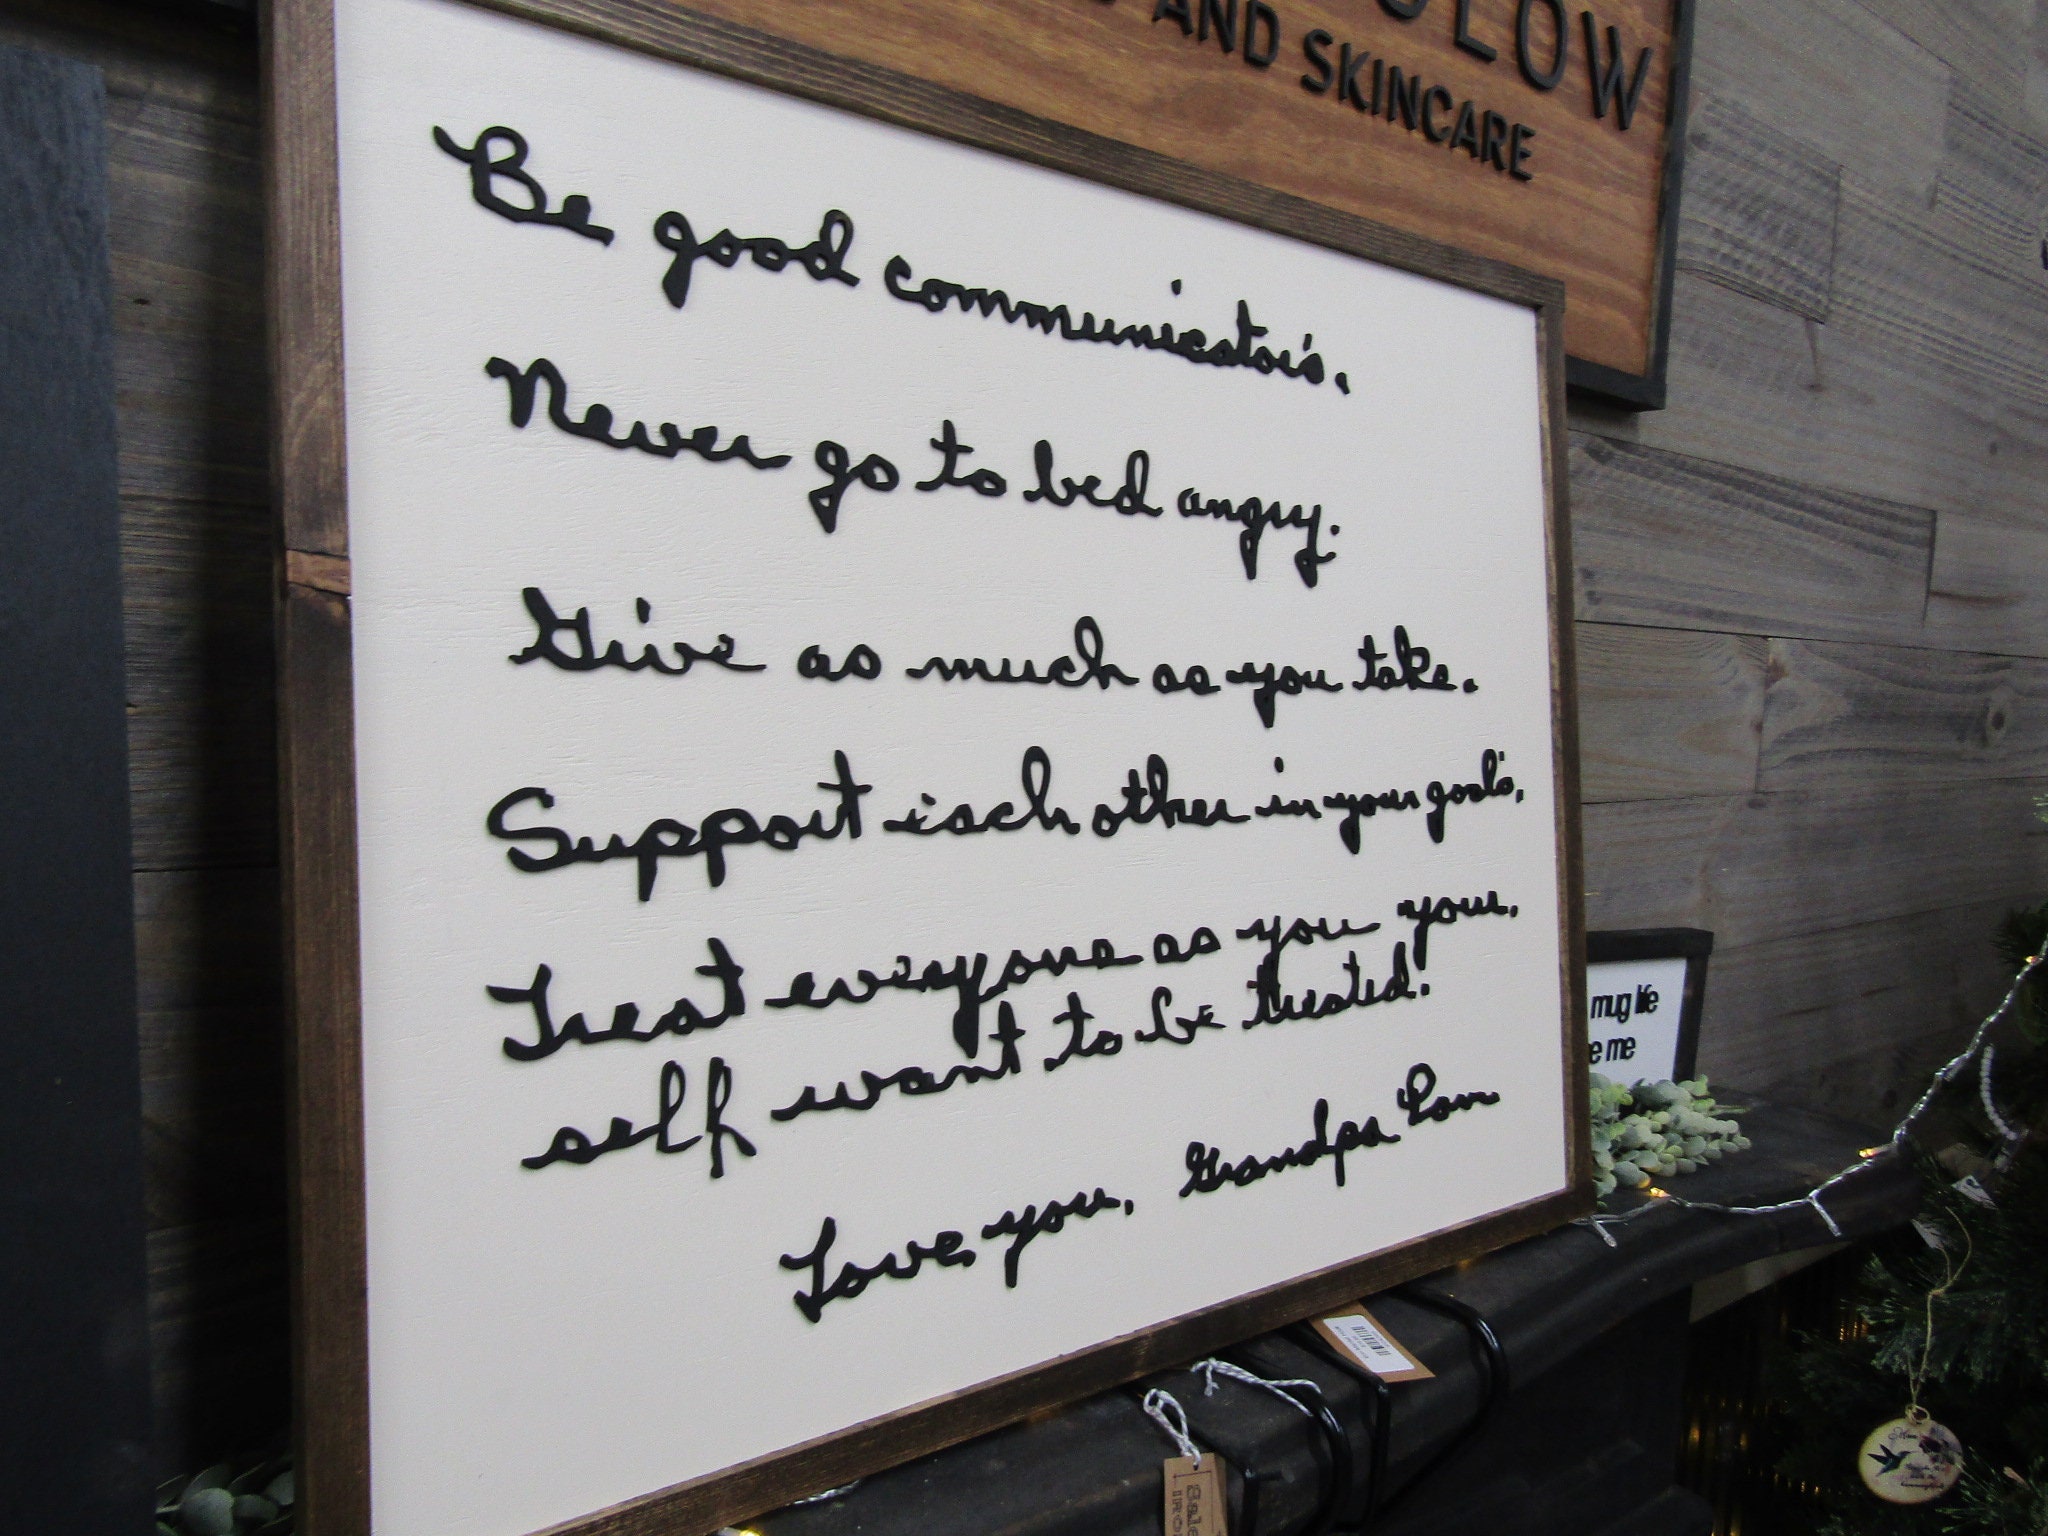 AND SKINCARE
Be good communicator's.
Never go to bed angry.
Give as much as you take.
Support each other in your goal's.
Treat everyone as you your,
self want to be treated.
Love you, Grandpa
mug life
me